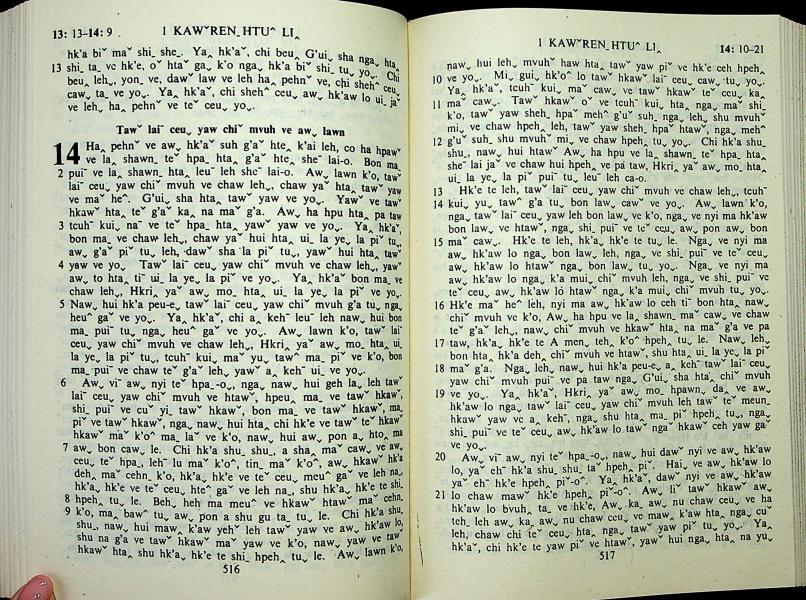 13: 13–14: 9 I KAWˇREN_HTUˆ LI‸
hk'aˇ biˇ maˇ shi_ she_. Ya‸ hk'aˇ, chi beu‸ G'ui‸ sha nga‸ hta‸
13 shi_ ta‸ ve hk'e, oˇ htaˇ ga‸ k'o nga‸ hk'aˇ biˇ shi_ tu‸ yo‸. Chi
beu‸ leh‸, yon_ ve, dawˇ law ve leh ha‸ pehnˇ ve, chi shehˇ ceu‸
caw‸ ta‸ ve yo‸. Ya‸ hk'aˇ, chi shehˇ ceu‸ aw‸ hk'aw lo ui_ jaˇ
ve leh‸ ha‸ pehnˇ ve teˇ ceu‸ yo‸.
Tawˇ laiˉ ceu‸ yaw chiˇ mvuh ve aw‸ lawn
14 Ha‸ pehnˇ ve aw‸ hk'aˇ suh g'aˇ hte‸ k'ai leh‸ co ha hpaw
ve la‸ shawn_ teˇ hpa_ hta‸ g'aˇ hte‸ sheˉ lai-o. Bon ma_
2 puiˉ ve la‸ shawn_ hta‸ leuˉ leh sheˉ lai-o. Aw‸ lawn k'o, tawˇ
laiˉ ceu‸ yaw chiˇ mvuh ve chaw leh‸, chaw yaˇ hta‸ tawˇ yaw
ve maˇ heˆ. G'ui‸ sha hta‸ tawˇ yaw ve yo‸. Yawˇ ve tawˇ
hkawˇ hta‸ teˇ g'aˇ ka‸ na maˇ g'a. Aw‸ ha hpu hta‸ pa taw
3 tcuhˉ kui_ naˉ ve teˇ hpa_ hta‸ yawˇ yaw ve yo‸. Ya‸ hk'aˇ,
bon ma‸ ve chaw leh‸, chaw yaˇ hui hta‸ ui_ la‸ ye‸ la‸ piˇ tu‸,
aw‸ g'aˇ piˇ tu‸ leh, dawˇ sha la piˇ tu‸, yawˇ hui hta‸ tawˇ
4 yaw ve yo‸. Tawˇ laiˉ ceu‸ yaw chiˇ mvuh ve chaw leh‸, yawˇ
aw‸ to hta‸ tiˉ ui_ la‸ ye‸ la piˇ ve yo‸. Ya‸ hk'aˇ bon ma‸ ve
chaw leh‸, Hkri‸ yaˇ aw‸ mo_ hta‸ ui_ la‸ ye‸ la‸ piˇ ve yo‸.
5 Naw‸ hui hk'a peu-e‸ tawˇ laiˉ ceu‸ yaw chiˇ mvuh g'a tu‸ nga‸
heuˆ ga ve yo‸. Ya‸ hk'aˇ, chi a‸ kehˉ leuˉ leh naw‸ hui bon
ma_ puiˉ tu‸ nga‸ heuˆ ga ve yo‸. Aw‸ lawn k'o, tawˇ laiˉ
ceu‸ yaw chiˇ mvuh ve chaw leh‸, Hkri‸ yaˇ aw‸ mo_ hta‸ ui_
la‸ ye‸ la‸ piˇ tu‸, tcuhˉ kui_ maˇ yu‸ tawˆ ma_ pi‸ ve k'o, bon
ma_ puiˉ ve chaw teˇ g'aˇ leh‸ yawˇ a‸ kehˉ ui_ ve yo‸.
6 Aw‸ viˉ aw‸ nyi teˇ hpa_-o‸, nga‸ naw‸ hui geh la‸ leh tawˇ
laiˉ ceu‸ yaw chiˇ mvuh ve htawˇ, hpeu‸ ma‸ ve tawˇ hkawˇ,
shi_ puiˉ ve cuˇ yi_ tawˇ hkawˇ, bon ma‸ ve tawˇ hkawˇ, ma_
piˇ ve tawˇ hkawˇ, nga‸ naw‸ hui hta‸ chi hk'e ve tawˇ teˇ hkawˇ
hkawˇ maˇ k'oˆ ma_ laˇ ve k'o, naw‸ hui aw‸ pon a‸ hto‸ ma
7 aw‸ bon caw‸ le. Chi hk'a shu_ shu_, a sha‸ maˇ caw‸ ve aw‸
ceu‸ teˇ hpa_ lehˉ lu maˇ k'oˆ, tin_ maˇ k'oˆ, aw‸ hkawˇ hk'a
deh‸ maˇ cehn_ k'o, hk'a‸ hk'e ve teˇ ceu‸ meuˆ ga ve leh na_
hk'a‸ hk'e ve teˇ ceu‸ hteˆ ga ve leh na_, shu hk'a‸ hk'e te shi_
8 hpeh_ tu_ le. Beh_ heh ma meuˆ ve hkawˇ htawˇ maˇ cehn_
9 k'o, ma_ bawˆ tu_ aw‸ pon a shu gu ta_ tu_ le. Chi hk'a shu_
shu_, naw‸ hui maw‸ k'aw yehˇ leh tawˇ yaw ve aw‸ hk'aw lo,
shu na g'a ve tawˇ hkawˇ maˇ yaw ve k'o, naw‸ yaw ve tawˇ
hkawˇ hta‸ shu hk'a‸ hk'e te shi_ hpeh‸ tu_ le. Aw‸ lawn k'o,
516
I KAWˇREN_HTUˆ LI‸ 14: 10–21
naw‸ hui leh‸ mvuhˇ haw hta‸ tawˇ yaw piˇ ve hk'e ceh hpeh‸
10 ve yo‸. Mi_ gui_ hk'oˆ lo tawˇ hkawˇ laiˉ ceu‸ caw‸ tu_ yo‸.
Ya‸ hk'aˇ, tcuhˉ kui_ maˇ caw‸ ve tawˇ hkawˇ teˇ ceu‸ ka_
11 maˇ caw‸. Tawˇ hkawˇ oˇ ve tcuhˉ kui_ hta‸ nga‸ maˇ shi_
k'o, tawˇ yaw sheh_ hpaˇ mehˆ g'uˇ suh_ nga‸ leh‸ shu mvuhˇ
mi‸ ve chaw hpeh‸ leh, tawˇ yaw sheh_ hpaˇ htawˇ, nga‸ mehˆ
12 g'uˇ suh_ shu mvuhˇ mi‸ ve chaw hpeh‸ tu_ yo‸. Chi hk'a shu_
shu_, naw‸ hui htaw Aw‸ ha hpu ve la‸ shawn_ teˇ hpa_ hta‸
sheˉ lai jaˇ ve chaw hui hpeh‸ ve pa taw, Hkri‸ yaˇ aw‸ mo_ hta‸
ui_ la‸ ye‸ la‸ piˇ puiˉ tu_ leuˉ leh ca-o.
13 Hk'e te leh‸, tawˇ laiˉ ceu‸ yaw chiˇ mvuh ve chaw leh‸, tcuhˉ
14 kui_ yu‸ tawˆ g'a tu‸ bon law‸ caw‸ ve yo‸. Aw‸ lawn k'o,
nga‸ tawˇ laiˉ ceu‸ yaw leh bon law‸ ve k'o, nga‸ ve nyi ma hk'aw
bon law‸ ve htawˇ, nga‸ shi_ puiˉ ve teˇ ceu‸ aw‸ pon aw‸ bon
15 maˇ caw‸. Hk'e te leh‸, hk'a‸ hk'e te tu_ le. Nga‸ ve nyi ma
aw‸ hk'aw lo nga‸ bon law‸ leh, nga‸ ve shi_ puiˉ ve teˇ ceu‸
aw‸ hk'aw lo htawˇ nga‸ bon law‸ tu_ yo‸. Nga‸ ve nyi ma
aw‸ hk'aw lo nga‸ k'a mui_ chiˇ mvuh leh, nga‸ ve shi_ puiˉ ve
teˇ ceu‸ aw‸ hk'aw ló htawˇ nga‸ k'a mui_ chiˇ mvuh tu_ yo‸.
16 Hk'e maˇ heˆ leh‸, nyi ma aw‸ hk'aw lo ceh tiˉ bon hta‸ naw‸
chiˇ mvuh ve k'o, Aw‸ ha hpu ve la‸ shawn_ maˇ caw‸ ve chaw
teˇ g'aˇ leh‸, naw‸ chiˇ mvuh ve hkawˇ hta‸ na maˇ g'a ve pa
17 taw, hk'a‸ hk'e te A men_ teh‸ k'oˆ hpeh‸ tu_ le. Naw‸ leh‸
bon hta‸ hk'a deh‸ chiˇ mvuh ve htawˇ, shu hta‸ ui_ la‸ ye‸ la‸ piˇ
18 maˇ g'a. Nga‸ leh‸ naw‸ hui hk'a peu-e‸ a‸ kehˉ tawˇ laiˉ ceu‸
yaw chiˇ mvuh puiˉ ve pa taw nga‸ G'ui‸ sha htaˇ chiˇ mvuh
19 ve yo‸. Ya‸ hk'aˇ, Hkri‸ yaˇ aw‸ mo_ hpawn_ da‸ ve aw‸
hk'aw lo nga‸ tawˇ laiˉ ceu‸ yaw chiˇ mvuh leh tawˇ teˇ meun_
hkawˇ yaw ve a‸ kehˉ, nga‸ shu hta‸ ma_ piˇ hpeh‸ tu‸, nga‸
shi_ puiˉ ve teˇ ceu‸ aw‸ hk'aw lo tawˇ ngaˇ hkawˇ ceh yaw ga
ve yo‸.
20 Aw‸ viˉ aw‸ nyi teˇ hpa_-o‸, naw‸ hui dawˇ nyi ve aw‸ hk'aw
lo, yaˇ ehˉ hk'a shu_ shu_ taˇ hpeh‸ piˇ. Hai‸ ve aw‸ hk'aw lo
yaˇ ehˉ hk'e hpeh‸ piˇ-oˆ. Ya‸ hk'aˇ, dawˇ nyi ve aw‸ hk'aw
21 lo chaw mawˇ hk'e hpeh‸ piˇ-oˆ. Aw‸ liˇ tawˇ hkawˇ aw‸
hk'aw lo bvuh‸ ta‸ ve hk'e, Aw‸ ka_ aw‸ nu chaw ceu‸ ve ha
teh_ leh aw‸ ka_ aw‸ nu chaw ceu‸ ve maw‸ k'aw hta‸ nga‸ cuˇ
leh, chaw chi teˇ ceu‸ hta‸ nga‸ tawˇ yaw piˇ tu_ yo‸. Ya‸
hk'aˇ, chi hk'e te yaw piˇ ve htawˇ, yawˇ hui nga‸ hta‸ na yu‸
517